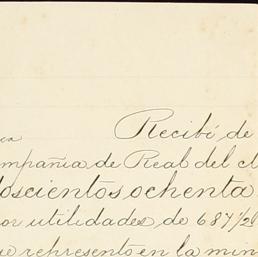 Recibí de
mpañia de Real del
doscientos ochenta
or utilidades de 687 1/2
ue represento en la min